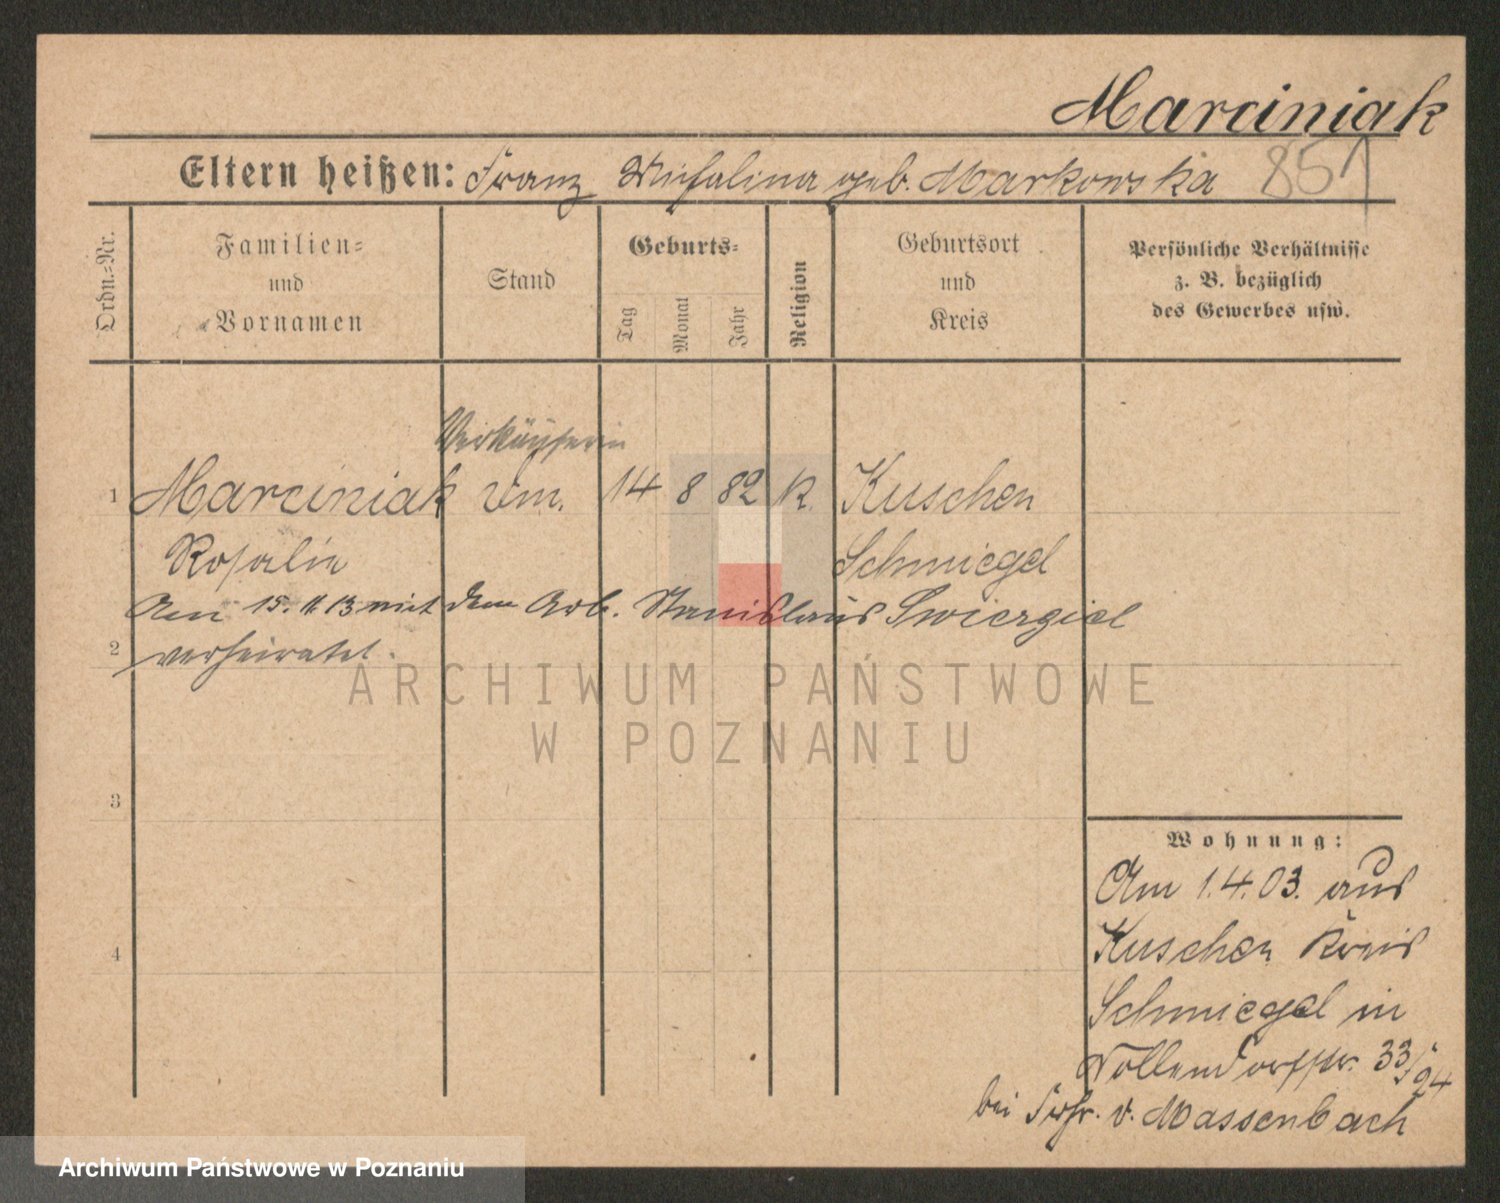 Marciniak
Eltern heißen: Franz Michalina geb. Markowska 851
Ordn.-Nr.
Familien-
und
Vornamen
Stand
Geburts-
Tag
Monat
Jahr
Religion
Geburtsort
und
Kreis
Persönliche Verhältnisse
z. B. bezüglich
des Gewerbes usw.
Verkäuferin
1 Marciniak 14 8 82 K. Kuschen
Rosalie Schmiegel
Am 15. 11. 13 mit dem Arb. Stanislaus Swiergiel
2 verheiratet.
ARCHIWUM PAŃSTWOWE
W POZNANIU
3
Wohnung:
Am 1.4.03. aus
4 Kuschen Kreis
Schmiegel in
Nollendorfstr. 33
bei Frhr. v. Massenbach
Archiwum Państwowe w Poznaniu